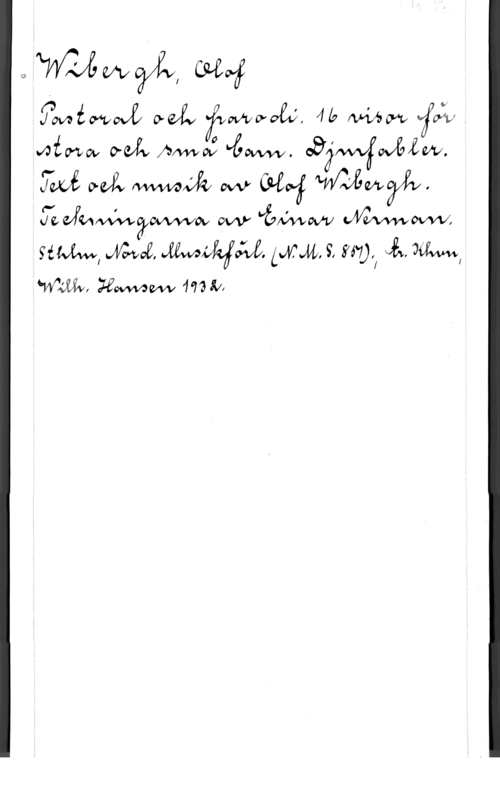 Wibergh, Olof
Pastoral och parodi. 16 visor för
stora och små barn. Djurfabler.
Text och musik av Olof Wibergh.
Teckningarna av Einar Nerman.
Sthlm, Nord. Musikförl. (N.M.S. 857), tr. Khvn,
Wilh. Hansen 1932.